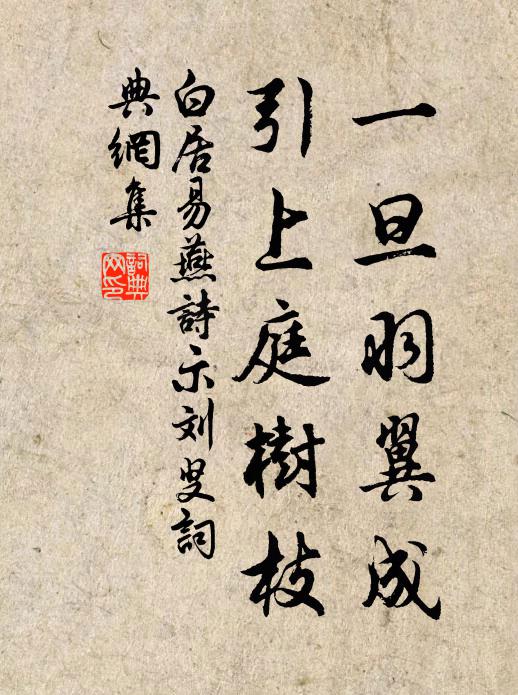 一旦羽翼成
引上庭樹枝
白居易燕詩示刘叟詞
典網集
詞典网印